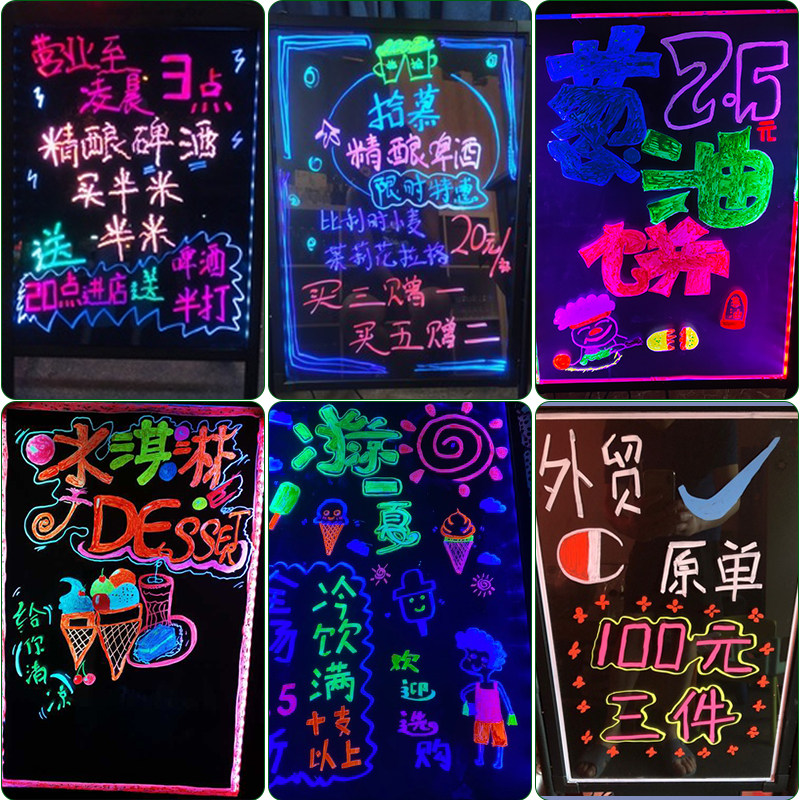 营业至
凌晨3点
精酿碑酒
买半米
送半米
20点进店送
啤酒
半打
拾慕
精酿啤酒
限时特惠
比利时小麦
茉莉花拉格
20元/
买三赠一
买五赠二
黄
2.5元
油
饼
冰淇淋
DESSERT
给你清凉
凉一夏
冷饮满
十支
以上
全场
5
折
欢迎选购
外贸
原单
100元
三件